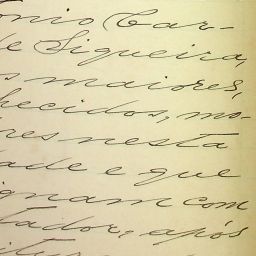 onio Car-
de Siqueira,
s maiores,
hecidos, mo-
res nesta
dade e que
ignam com
tador, após